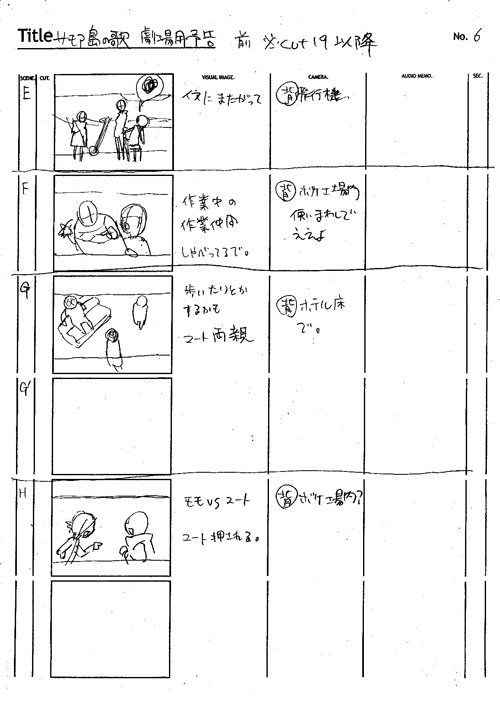 Title サモア島の歌 劇場用予告 前 ※cut 19 以降 No. 6
SCENE. CUT. VISUAL IMAGE. CAMERA. AUDIO MEMO. SEC.
E イスにまたがって 背 飛行機
F 作業中の 背 ボケ工場内
作業仲間 使いまわしで
しゃべってるで。 ええよ
G 歩いたりとか
するかも 背 ホテル床
コート両親 で。
G'
H モモ vs コート 背 ボケ工場内?
コート押される。